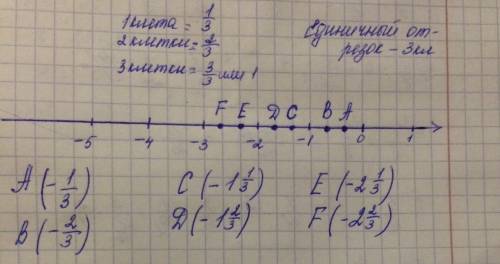 1клета = 1/3
2клетки = 2/3
3клетки = 3/3 или 1
Единичный от-
резок – 3кл
F E D C B A
-5 -4 -3 -2 -1 0 1
A (-1/3) C (-1 1/3) E (-2 1/3)
B (-2/3) D (-1 2/3) F (-2 2/3)